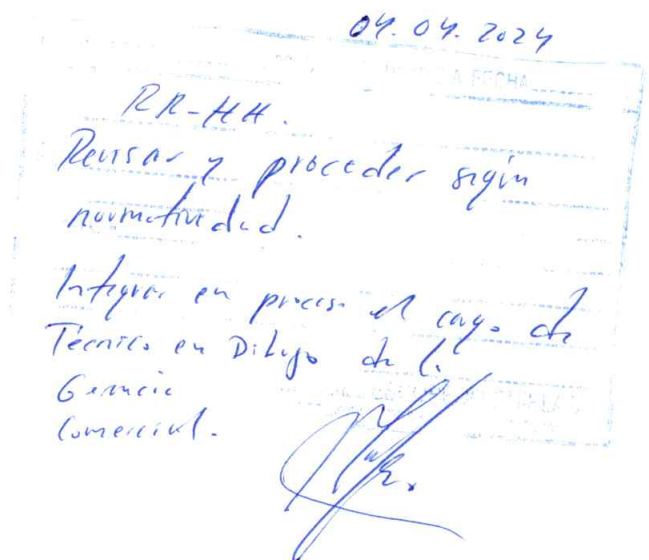 04.04.2024
FECHA
RR-HH.
Revisar y proceder según
normatividad.
Integrar en proceso el cargo de
Técnico en Dibujo de la
Gerencia
Comercial.